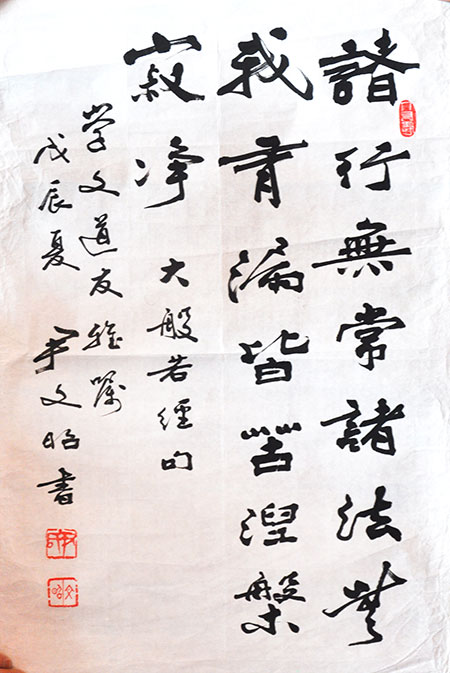 諸行無常諸法無
我有漏皆苦涅槃
寂净 大般若經句
学文道友雅嘱
戊辰夏 尹文昭書